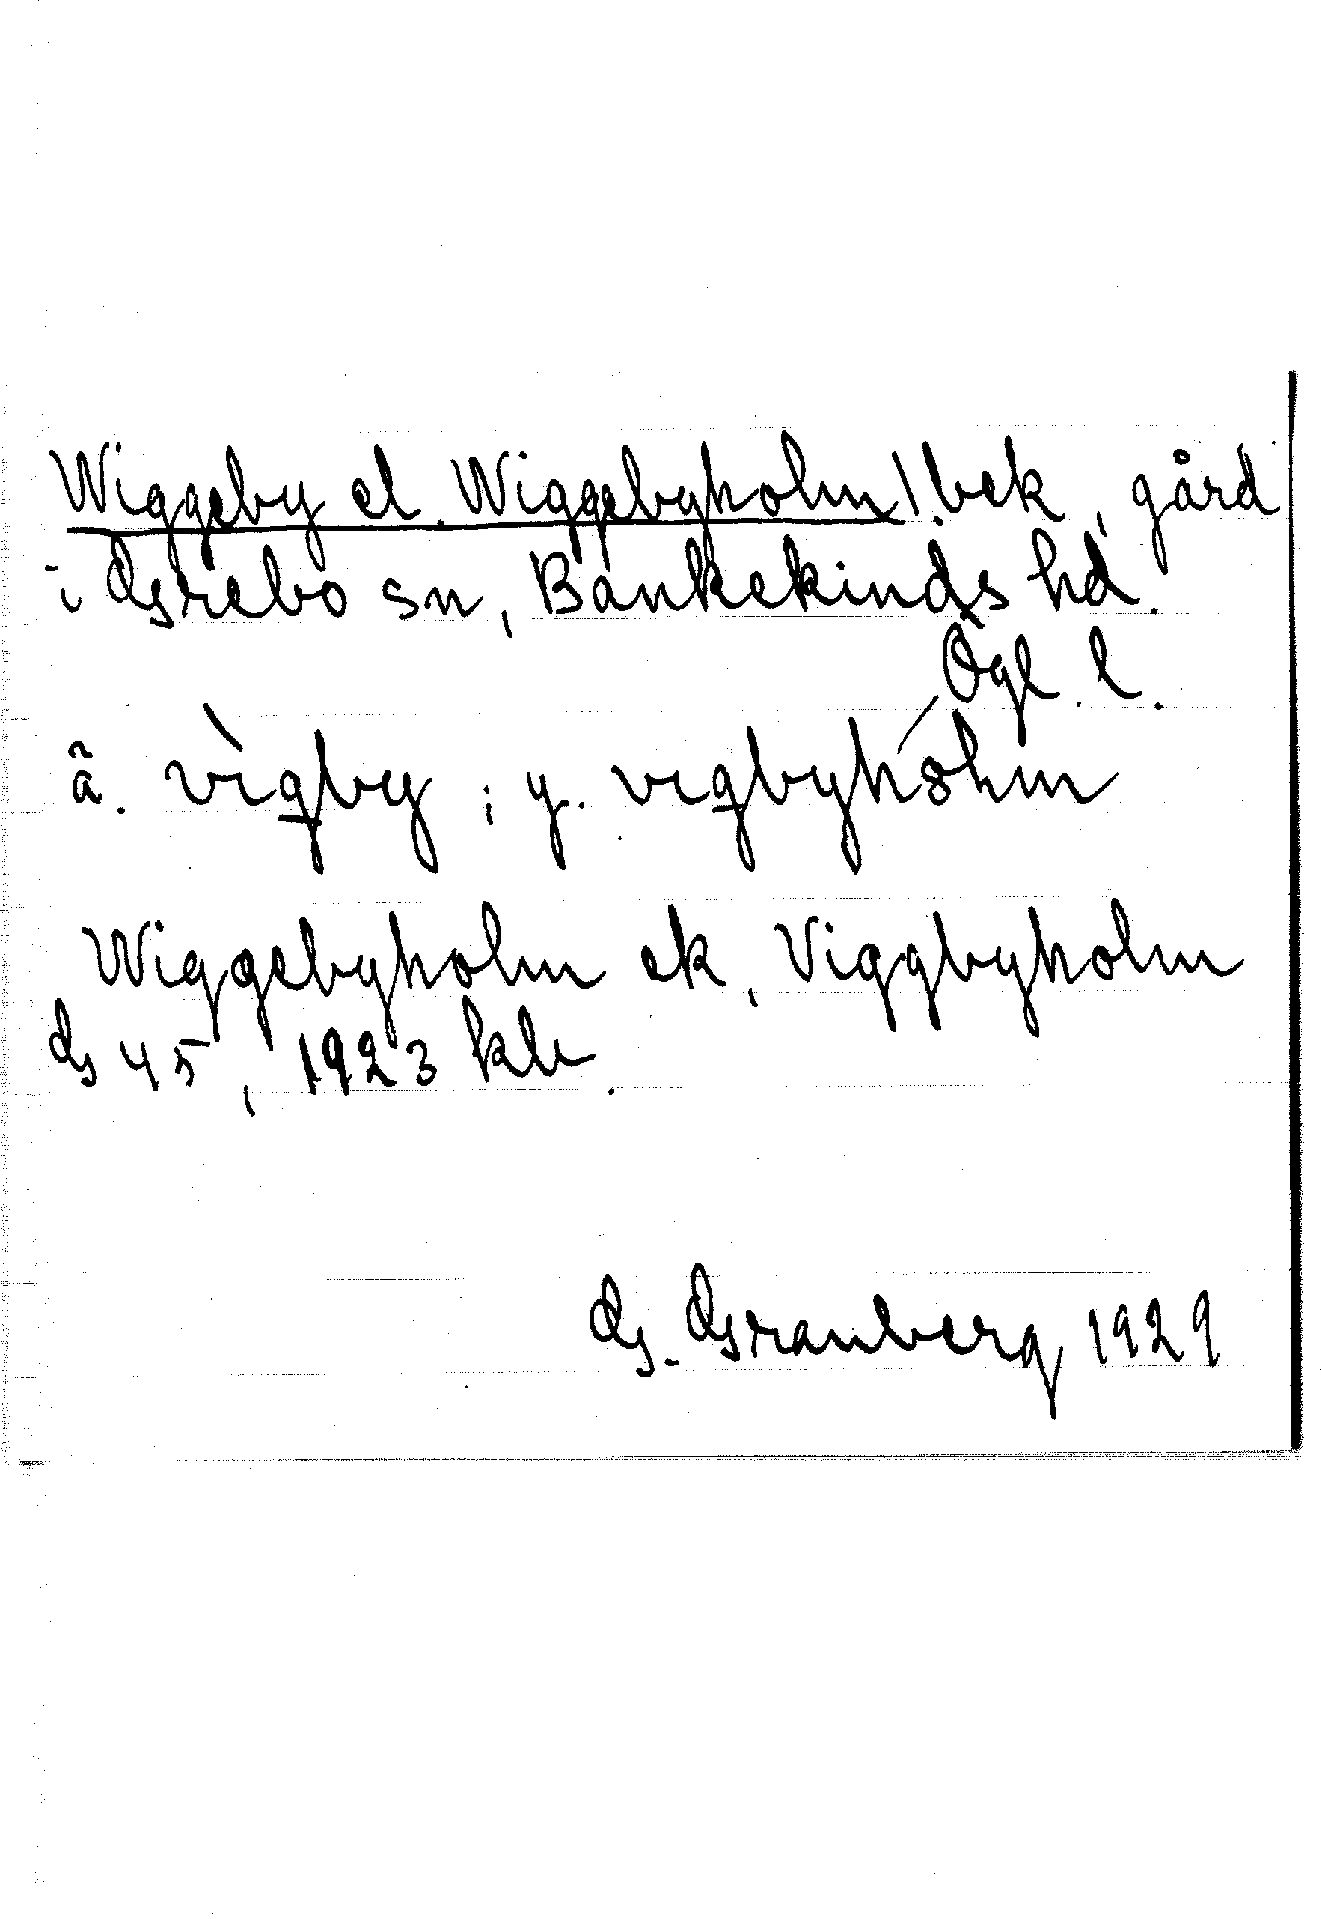 Wiggeby el. Wiggebyholm, jbek, gård
i Grebo sn, Bankekinds hd.
Ögl. l.
ä. vìgby ; y. vigbyhòlm
Wiggebyholm ek, Viggbyholm
G 45, 1923 kb.
G. Granberg 1929